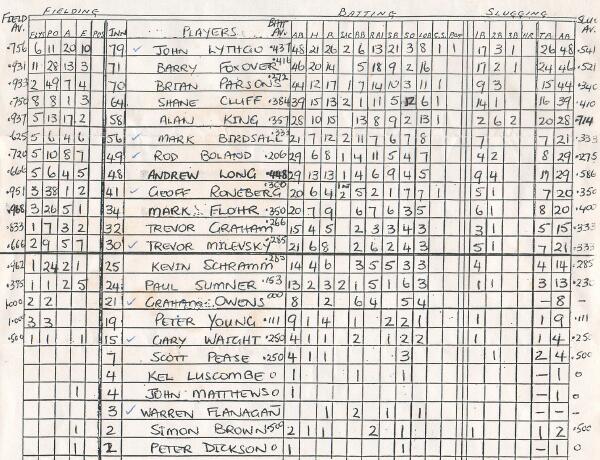 FIELDING BATTING SLUGGING
FIELD AV. FLY PO A E POS INN PLAYERS BATT AV. AB H R SAC BB RBI SB SO LOB G.S. 1B 2B 3B HR TB AB SLUG AV.
.756 6 11 20 10 79 JOHN LYTHGO .437 48 21 26 2 6 13 21 3 8 1 1 17 3 1 26 48 .541
.931 11 28 13 3 71 BARRY FOXOVER .416 46 20 14 5 18 9 2 16 17 2 1 24 46 .521
.933 2 49 7 4 70 BRIAN PARSONS .272 44 12 17 1 7 14 10 3 11 1 9 3 15 44 .340
.750 8 8 1 3 64 SHANE CLUFF .384 39 15 13 2 1 11 5 12 6 1 14 1 16 39 .410
.937 5 13 17 2 58 ALAN KING .357 28 10 15 13 8 9 2 13 1 2 6 2 20 28 .714
.625 5 6 4 6 56 MARK BIRDSALL .333 21 7 12 2 11 7 6 7 8 7 7 21 .333
.720 5 10 8 7 49 ROD BOLAND .206 29 6 8 1 4 11 5 4 7 4 2 8 29 .275
.666 5 6 4 5 48 ANDREW LONG .448 29 13 13 1 4 6 9 4 5 9 4 17 29 .586
.951 3 38 1 2 41 GEOFF RONEBERG .300 20 6 4 2 5 2 1 7 7 1 5 1 7 20 .350
3 26 5 1 34 MARK FLOHR .350 20 7 9 6 7 6 3 5 6 1 8 20 .400
.833 1 7 3 2 32 TREVOR GRAHAM .266 15 4 5 2 3 3 4 3 3 1 5 15 .333
.666 2 9 5 7 30 TREVOR MILEVSKY .285 21 6 8 2 6 2 4 3 5 1 7 21 .333
.962 1 24 2 1 25 KEVIN SCHRAMM .285 14 4 6 3 5 5 3 3 4 4 14 .285
.375 1 1 2 5 24 PAUL SUMNER .153 13 2 3 2 1 5 1 6 3 1 1 3 13 .230
1.000 2 2 21 GRAHAM OWENS .000 8 2 6 4 5 4 - 8 -
1.000 3 3 19 PETER YOUNG .111 9 1 4 1 2 2 1 1 1 9 .111
.500 1 1 1 15 GARY WAIGHT .250 4 1 1 2 1 2 2 1 1 4 .250
7 SCOTT PEASE .250 4 1 1 3 1 2 4 .500
4 KEL LUSCOMBE 0 1 1 - 1 0
1 4 JOHN MATTHEWS 0 1 - 1 0
3 WARREN FLANAGAN 1 2 1 1 - -
1 2 SIMON BROWN .500 2 1 1 2 1 1 1 2 .500
1 2 PETER DICKSON 0 1 1 - 1 0